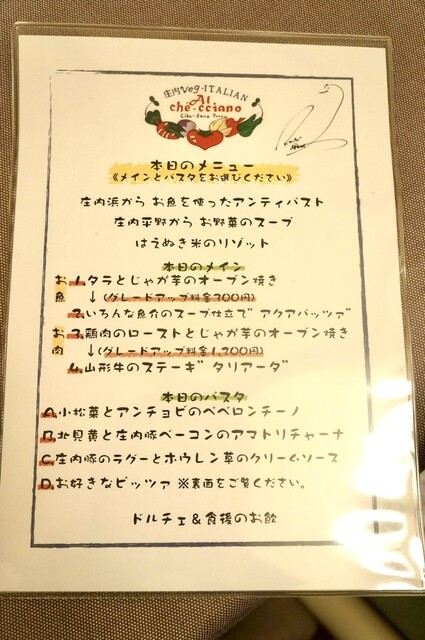 庄内Veg-ITALIAN
Al
chè-cciano
本日のメニュー
《メインとパスタをお選びください》
庄内浜から お魚を使ったアンティパスト
庄内平野から お野菜のスープ
はえぬき米のリゾット
本日のメイン
お魚 1.タラとじゃが芋のオーブン焼き
↓(グレードアップ料金300円)
2.いろんな魚介のスープ仕立て゛アクアパッツァ゛
お肉 3.鶏肉のローストとじゃが芋のオーブン焼き
↓(グレードアップ料金1,200円)
4.山形牛のステーキ゛タリアータ゛
本日のパスタ
A.小松菜とアンチョビのペペロンチーノ
B.北貝黄と庄内豚ベーコンのアマトリチャーナ
C.庄内豚のラグーとホウレン草のクリームソース
D.お好きなピッツァ ※裏面をご覧ください。
ドルチェ&食後のお飲